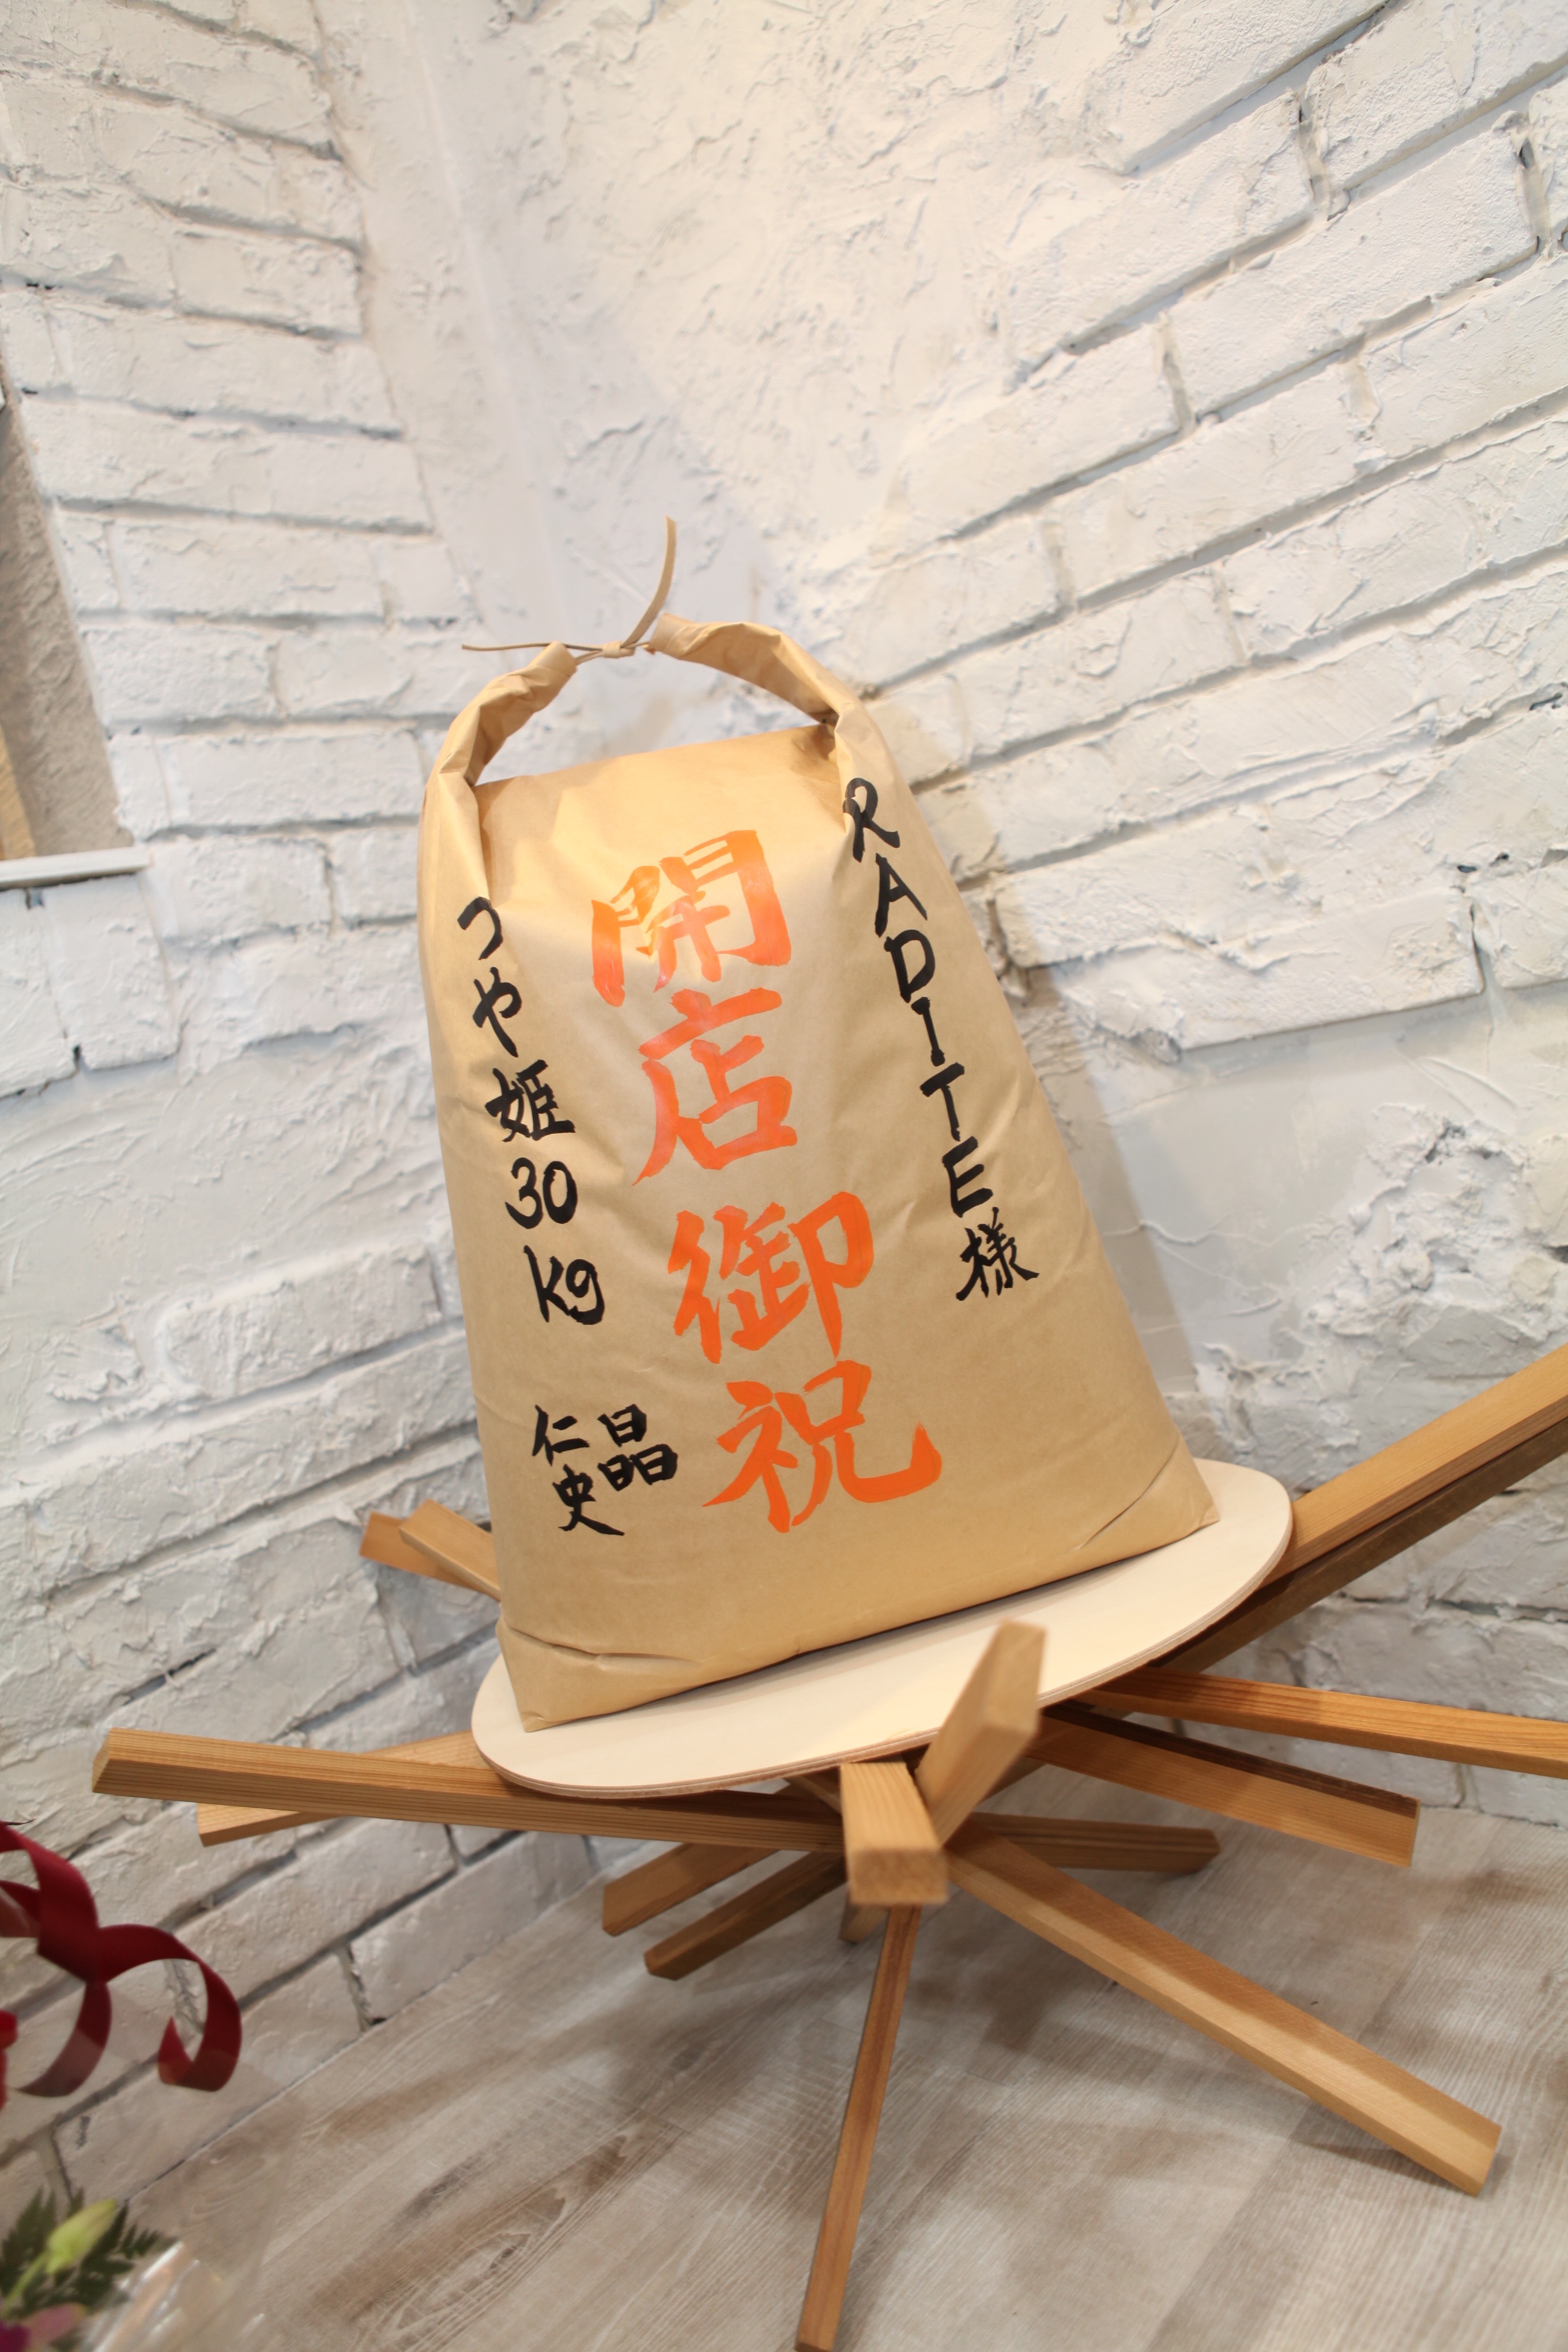 RADITE様
開店御祝
つや姫30kg
晶
仁史